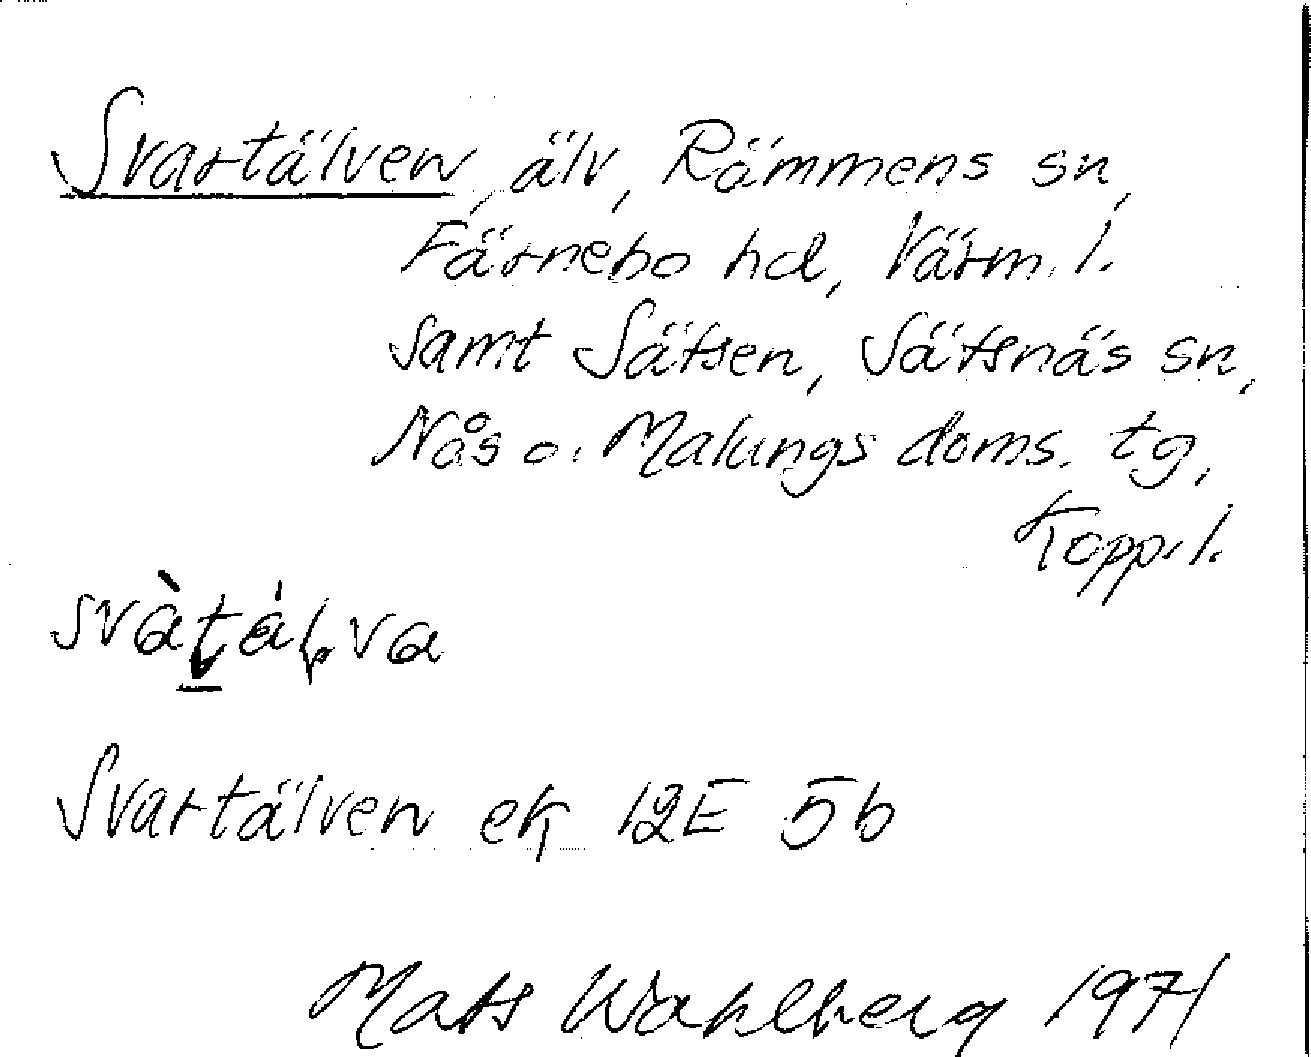 Svartälven, älv, Rämmens sn,
Färnebo hd, Värm. l.
samt Sätsen, Sätsnäs sn,
Nås o. Malungs doms. tg,
Kopp. l.
svàtälva
Svartälven ek 12E 5b
Mats Wahlberg 1971